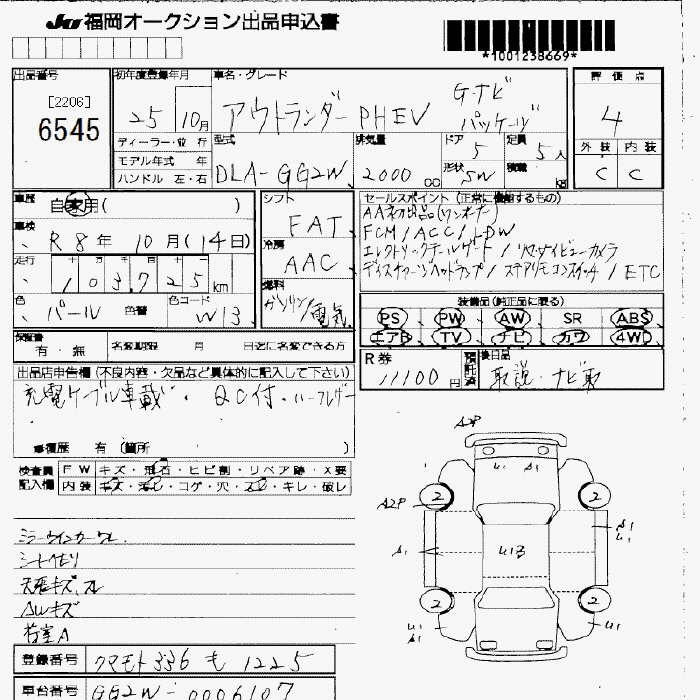 JU 福岡オークション出品申込書
*1001238669*
出品番号 初年度登録年月 車名・グレード 評価点
[2206]
6545
25 10月 アウトランダーPHEV G・ナビパッケージ 4
ディーラー・並行 型式 排気量 ドア 定員 外装 内装
モデル年式 年 5 5人
ハンドル 左・右 DLA-GG2W 2000cc 形状 SW 積載 kg C C
車歴 自家用( ) シフト FAT セールスポイント (正常に機能するもの)
AAネツ出品(ワンオーナー)
車検 R8年10月(14日) 冷房 AAC FCM/ACC/LDW
エレクトリックテールゲート/リヤビューカメラ
走行 103725km ディスチャージヘッドランプ/ステアリモコンスイッチ/ETC
色 パール 色替 色コード W13 燃料 ガソリン/電気
装備品(純正品に限る)
PS PW AW SR ABS
エアB TV ナビ カワ 4WD
保証書 有・無 名変期限 月 日迄に名変できる方
R券 11100円 預託済 後日品 取説・ナビ取
出品店申告欄 (不良内容・欠品など具体的に記入して下さい)
充電ケーブル車載・QC付・ハーフレザー
修復歴 有 (箇所 )
検査員記入欄 FW キズ・飛石・ヒビ割・リペア跡・X要
内装 キズ・汚し・コゲ・穴・スレ・キレ・破レ
ミラーウインカーワレ
シートヘタリ
天張キズ、スレ
AWキズ
荷室A
登録番号 クマモト336 も 1225
車台番号 GG2W-0006107
A2P
U1 A1
2 2
A2P
A1 U1B A1 U1
2 2
U1 A1 U1